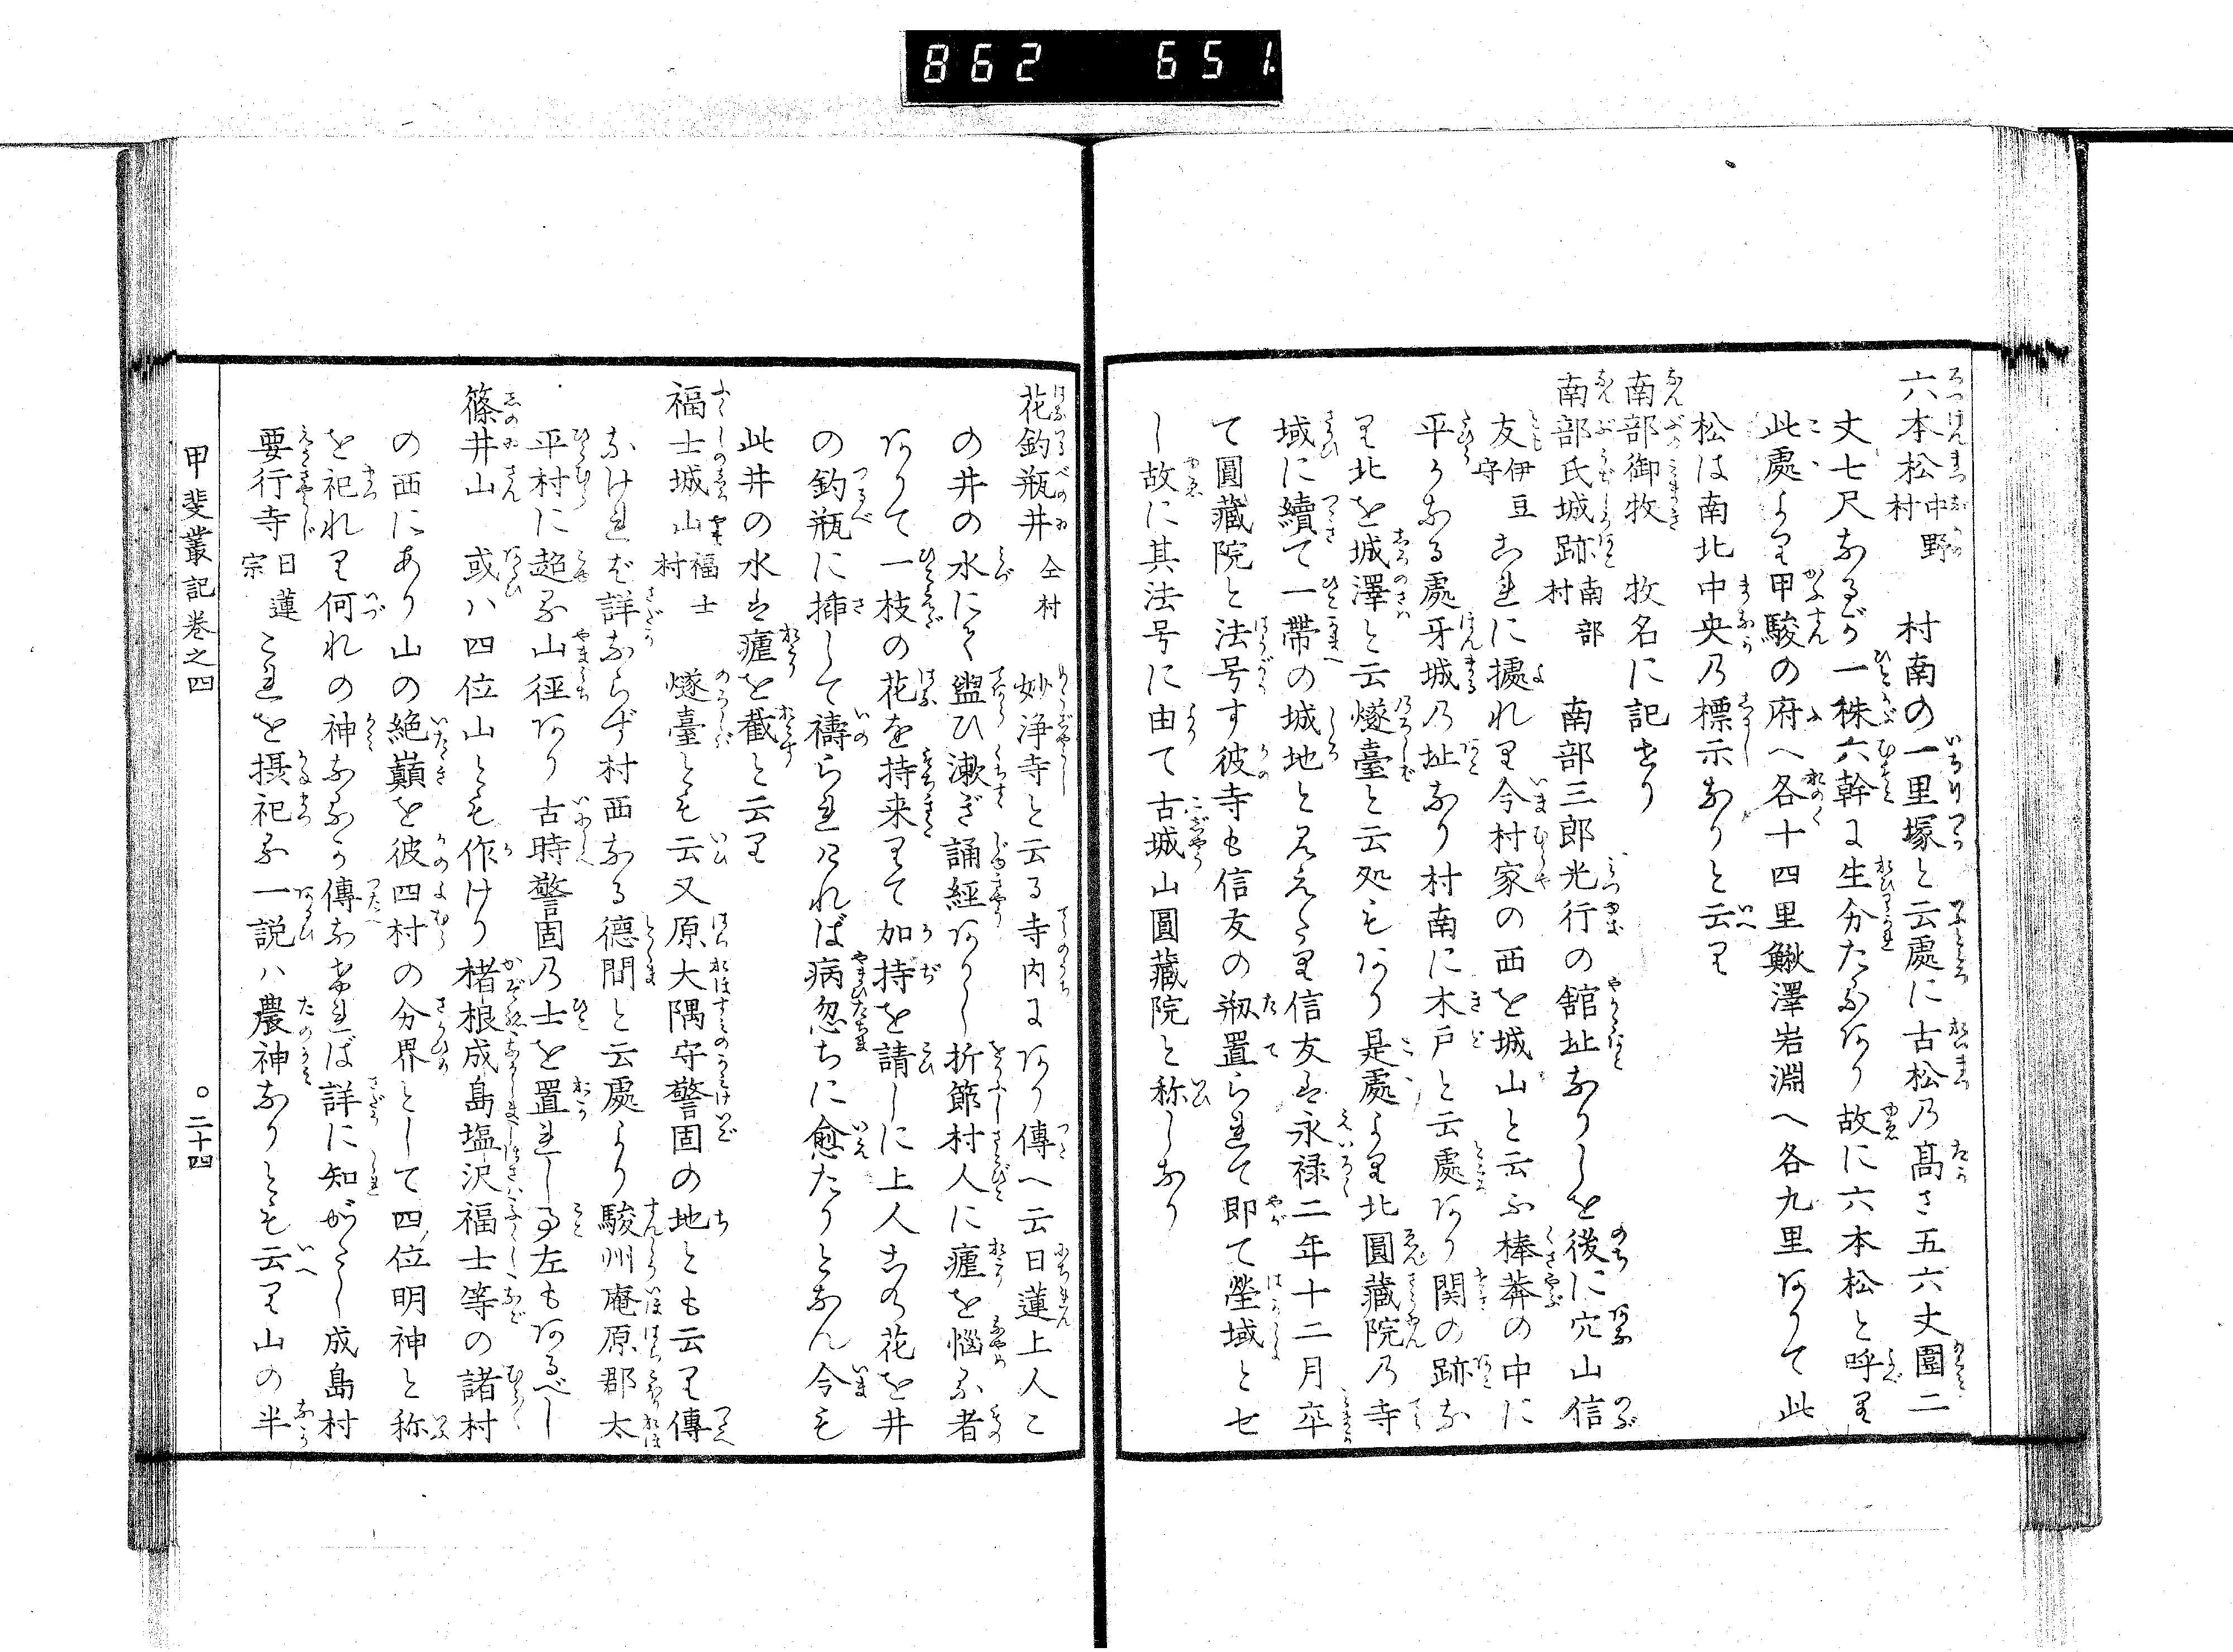 862 651
六本松 中野村 村南の一里塚と云處に古松乃髙さ五六丈圍二
丈七尺あるが一株六幹に生分たるあり故に六本松と呼り
此處より甲駿の府へ各十四里鰍澤岩淵へ各九里ありて此
松は南北中央乃標示ありと云り
南部御牧 牧名に記せり
南部氏城跡 南部村 南部三郎光行の舘址ありしを後に穴山信
友伊豆守これに據れり今村家の西を城山と云ふ棒莽の中に
平かある處牙城乃址あり村南に木戸と云處あり関の跡な
り北を城澤と云燧臺と云処もあり是處より北圓藏院乃寺
域に續て一帶の城地と見えたり信友は永禄二年十二月卒
て圓藏院と法号す彼寺も信友の剏置られて即て塋域とセ
し故に其法号に由て古城山圓藏院と称しあり
花釣瓶井 仝村 妙浄寺と云る寺内にあり傳へ云日蓮上人こ
の井の水にて盥ひ漱ぎ誦経ありし折節村人に瘧を悩る者
ありて一枝の花を持来りて加持を請しに上人この花を井
の釣瓶に挿して禱られければ病忽ちに愈たりとなん今も
此井の水は瘧を截と云り
福士城山 福士村 燧臺とも云又原大隅守警固の地とも云り傳
なければ詳ならず村西ある德間と云處より駿州庵原郡太
平村に超る山徑あり古時警固乃士を置れし事左もあるべし
篠井山 或ハ四位山とも作けり楮根成島塩沢福士等の諸村
の西にあり山の絶巓を彼四村の分界として四位明神と称
を祀れり何れの神なるか傳なければ詳に知がたし成島村
要行寺 日蓮宗 これを摂祀る一説ハ農神ありとも云り山の半
甲斐叢記巻之四 ○二十四